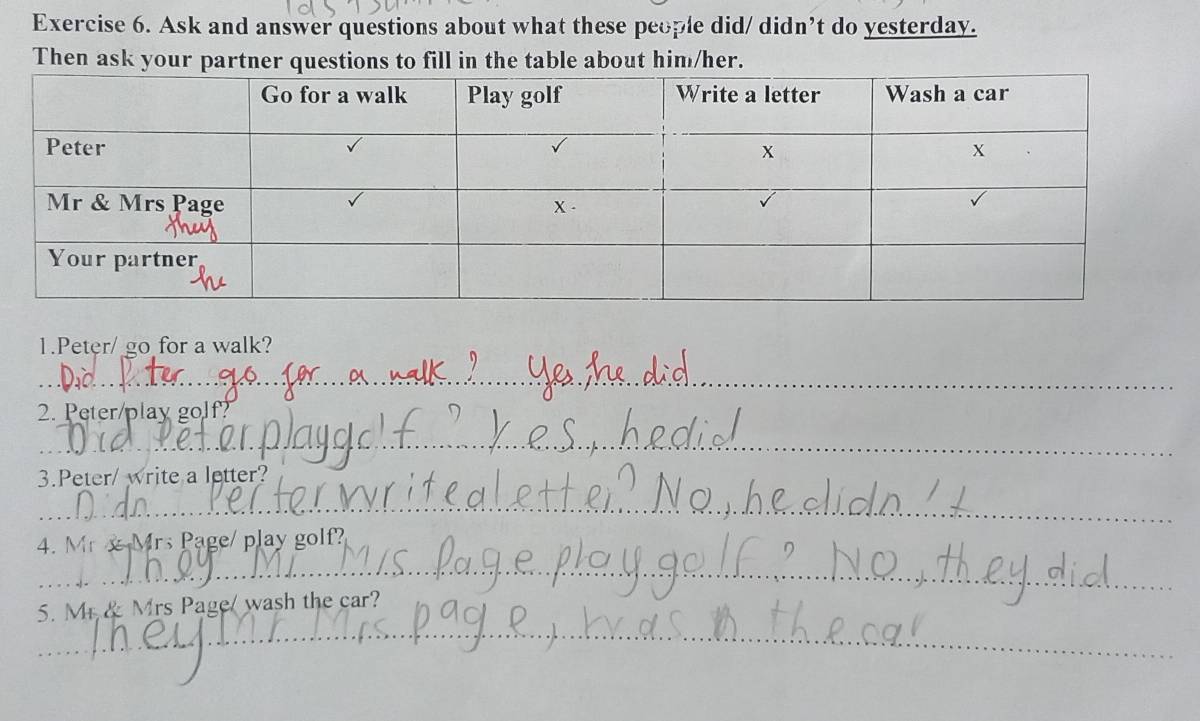 Exercise 6. Ask and answer questions about what these people did/ didn't do yesterday.
Then ask your partner questions to fill in the table about him/her.
Go for a walk Play golf Write a letter Wash a car
Peter ✓ ✓ X X
Mr & Mrs Page ✓ X - ✓ ✓
they
Your partner
he
1.Peter/ go for a walk?
Did Peter go for a walk? Yes, he did
2. Peter/play golf?
Did Peter play golf? Yes, he did
3.Peter/ write a letter?
Didn Perter write a letter? No, he didn't
4. Mr & Mrs Page/ play golf?
They Mr Mis Page play golf? No, they did
5. Mr & Mrs Page/ wash the car?
They Mr Mrs page, was h the car